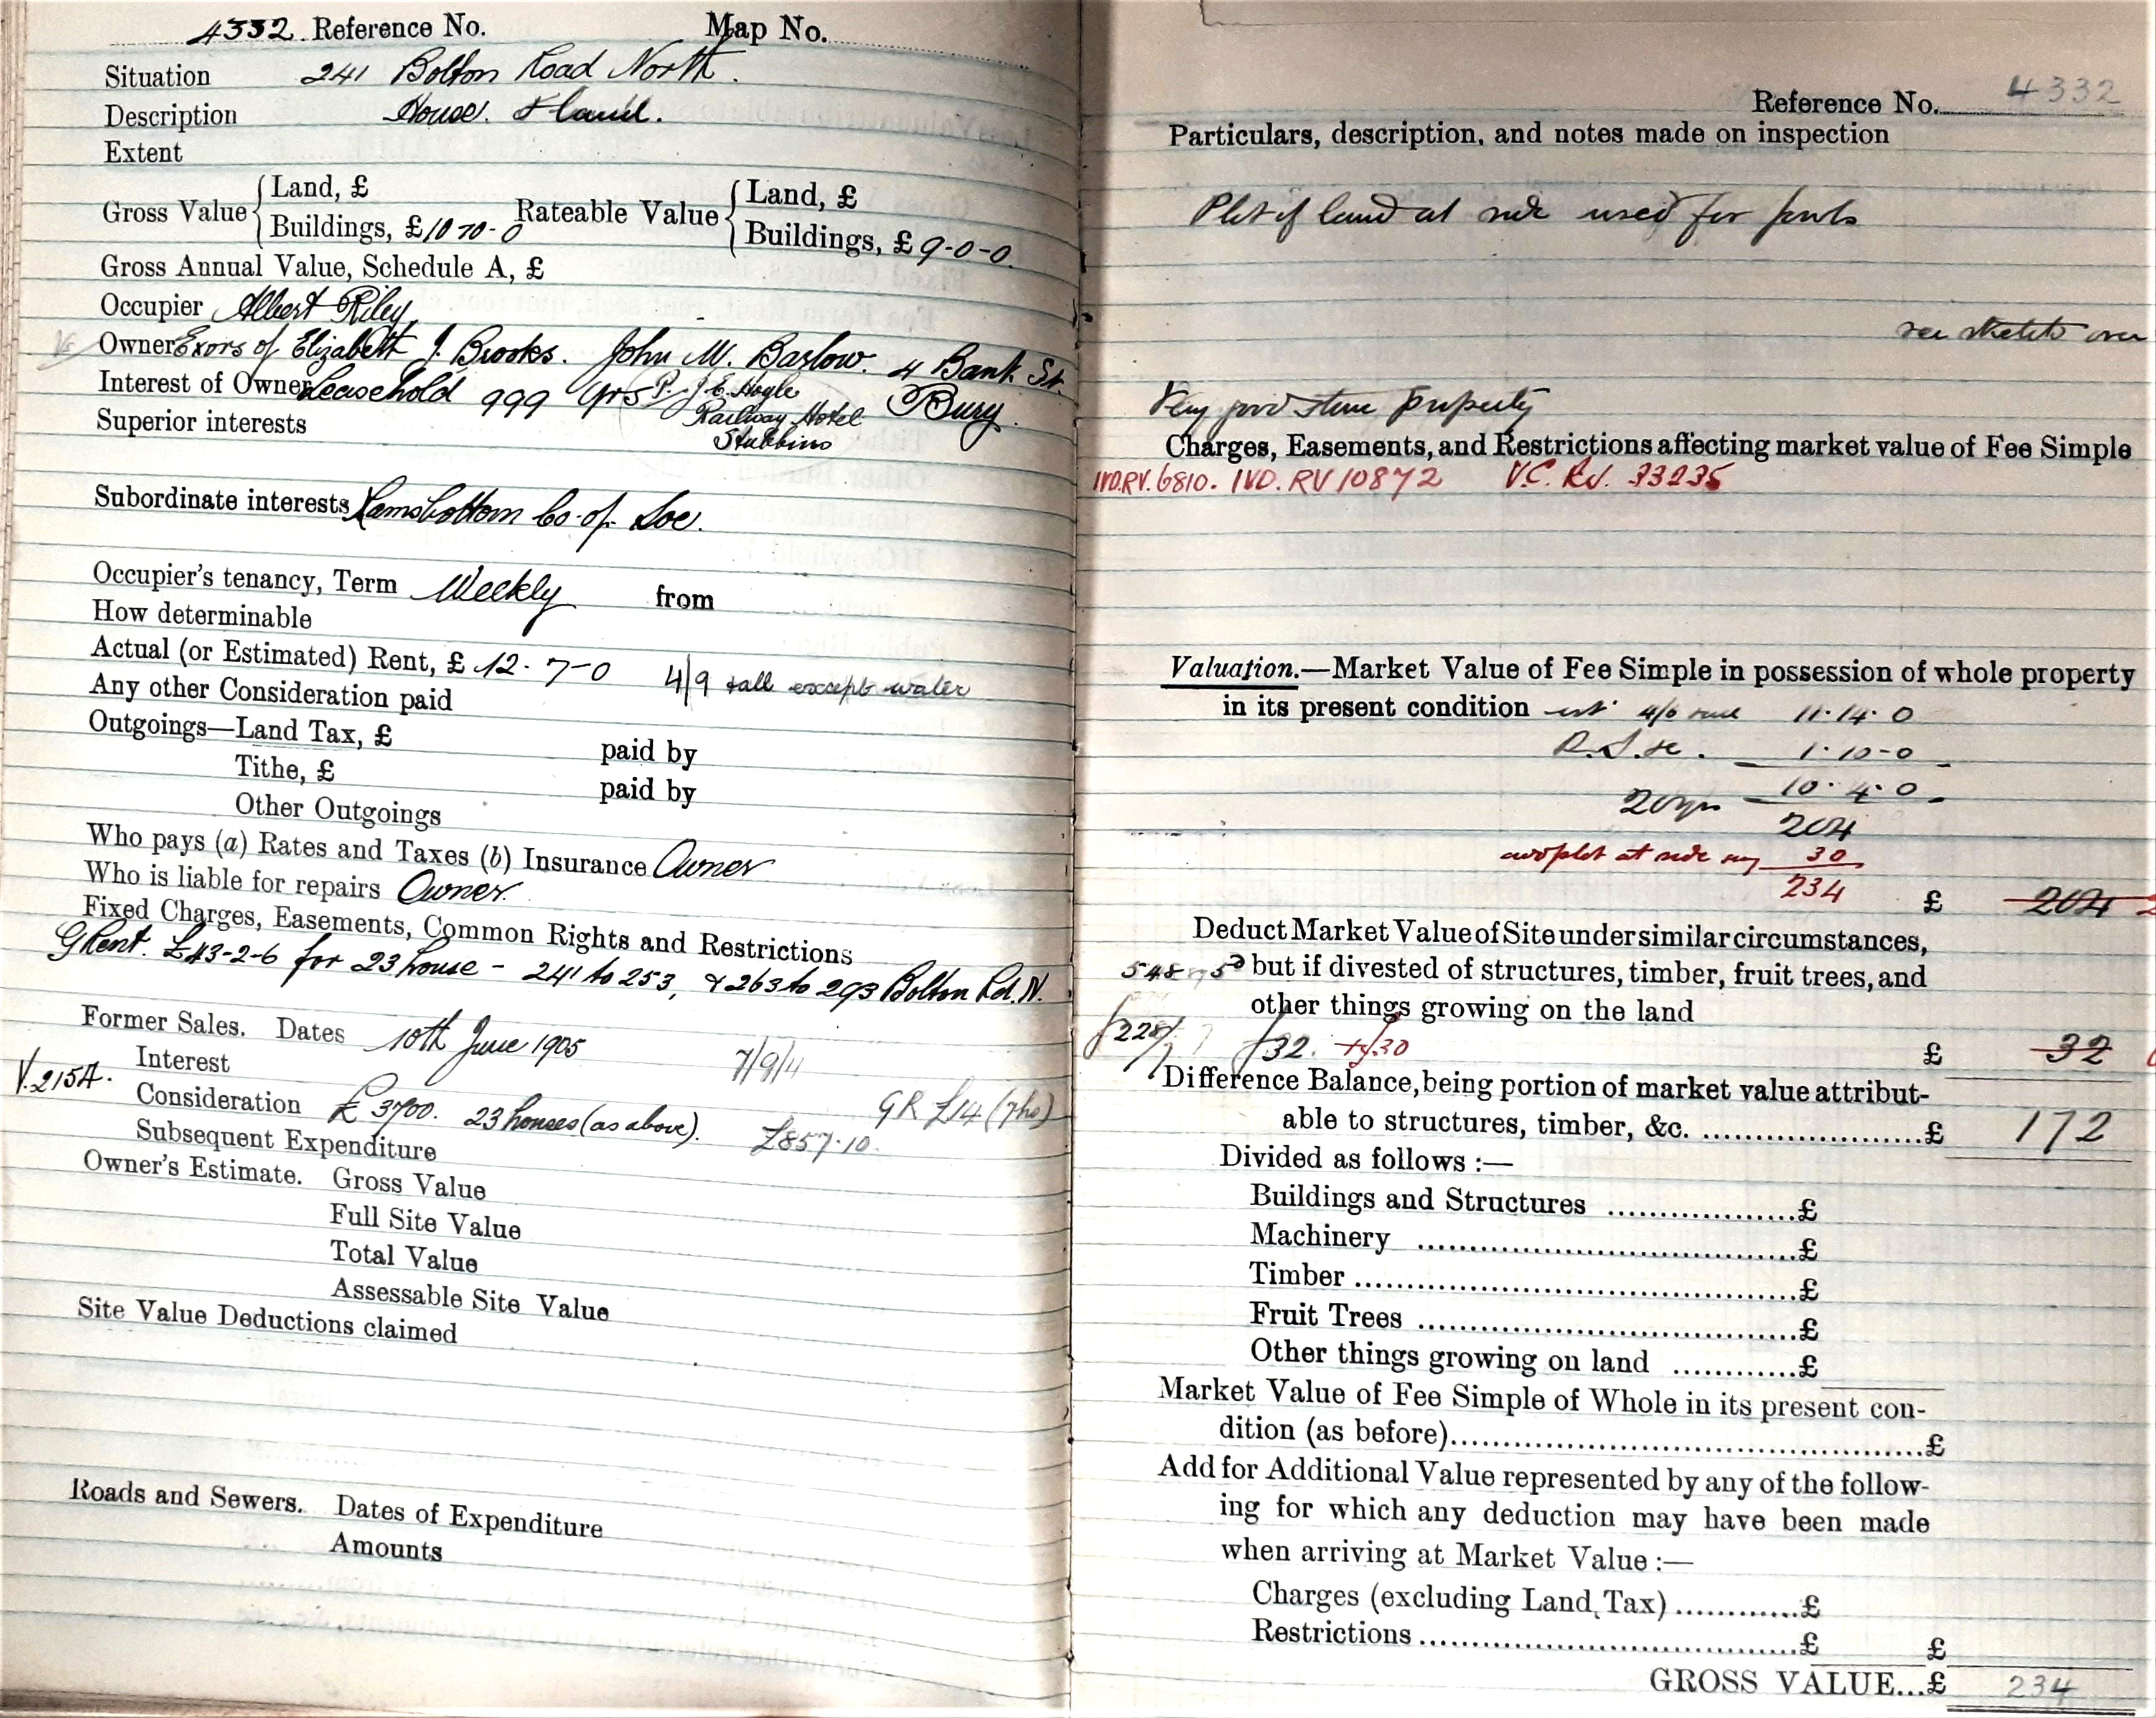 4332 Reference No. Map No.
Situation 241 Bolton Road North.
Description House. & land.
Extent
Gross Value { Land, £ Rateable Value { Land, £
Buildings, £10-10-0 Buildings, £ 9-0-0.
Gross Annual Value, Schedule A, £
Occupier Albert Riley
Owner Exors of Elizabeth J. Brooks. John M. Barlow. 4 Bank St.
Interest of Owner Leasehold 999 yrs P. J. E. Hogle Bury.
Railway Hotel
Superior interests Stubbins
Subordinate interests Ramsbottom Co-op. Soc.
Occupier's tenancy, Term Weekly from
How determinable
Actual (or Estimated) Rent, £ 12-7-0 4/9 & all except water
Any other Consideration paid
Outgoings—Land Tax, £ paid by
Tithe, £ paid by
Other Outgoings
Who pays (a) Rates and Taxes (b) Insurance Owner
Who is liable for repairs Owner.
Fixed Charges, Easements, Common Rights and Restrictions
G Rent. £43-2-6 for 23 house - 241 to 253, & 263 to 293 Bolton Rd. N.
Former Sales. Dates 10th June 1905 7/9/4
Interest
V.2154. Consideration £3700. 23 houses (as above). £857.10. GR £14 (7 hs)
Subsequent Expenditure
Owner's Estimate. Gross Value
Full Site Value
Total Value
Assessable Site Value
Site Value Deductions claimed
Roads and Sewers. Dates of Expenditure
Amounts
Reference No. 4332
Particulars, description, and notes made on inspection
Plot of land at side used for fowls
see sketch over
Very good stone property
Charges, Easements, and Restrictions affecting market value of Fee Simple
IVD.RV. 6810. IVD. RV 10872 V.C. Rd. 33235
Valuation.—Market Value of Fee Simple in possession of whole property
in its present condition est. 4/6 11.14.0
1.10-0
10.4.0
20 yrs
204
plot at side say 30
234 £ 204
Deduct Market Value of Site under similar circumstances,
548 but if divested of structures, timber, fruit trees, and
other things growing on the land
£32. + £30 £ 32
Difference Balance, being portion of market value attribut-
able to structures, timber, &c. £ 172
Divided as follows :—
Buildings and Structures £
Machinery £
Timber £
Fruit Trees £
Other things growing on land £
Market Value of Fee Simple of Whole in its present con-
dition (as before) £
Add for Additional Value represented by any of the follow-
ing for which any deduction may have been made
when arriving at Market Value :—
Charges (excluding Land Tax) £
Restrictions £ £
GROSS VALUE...£ 234